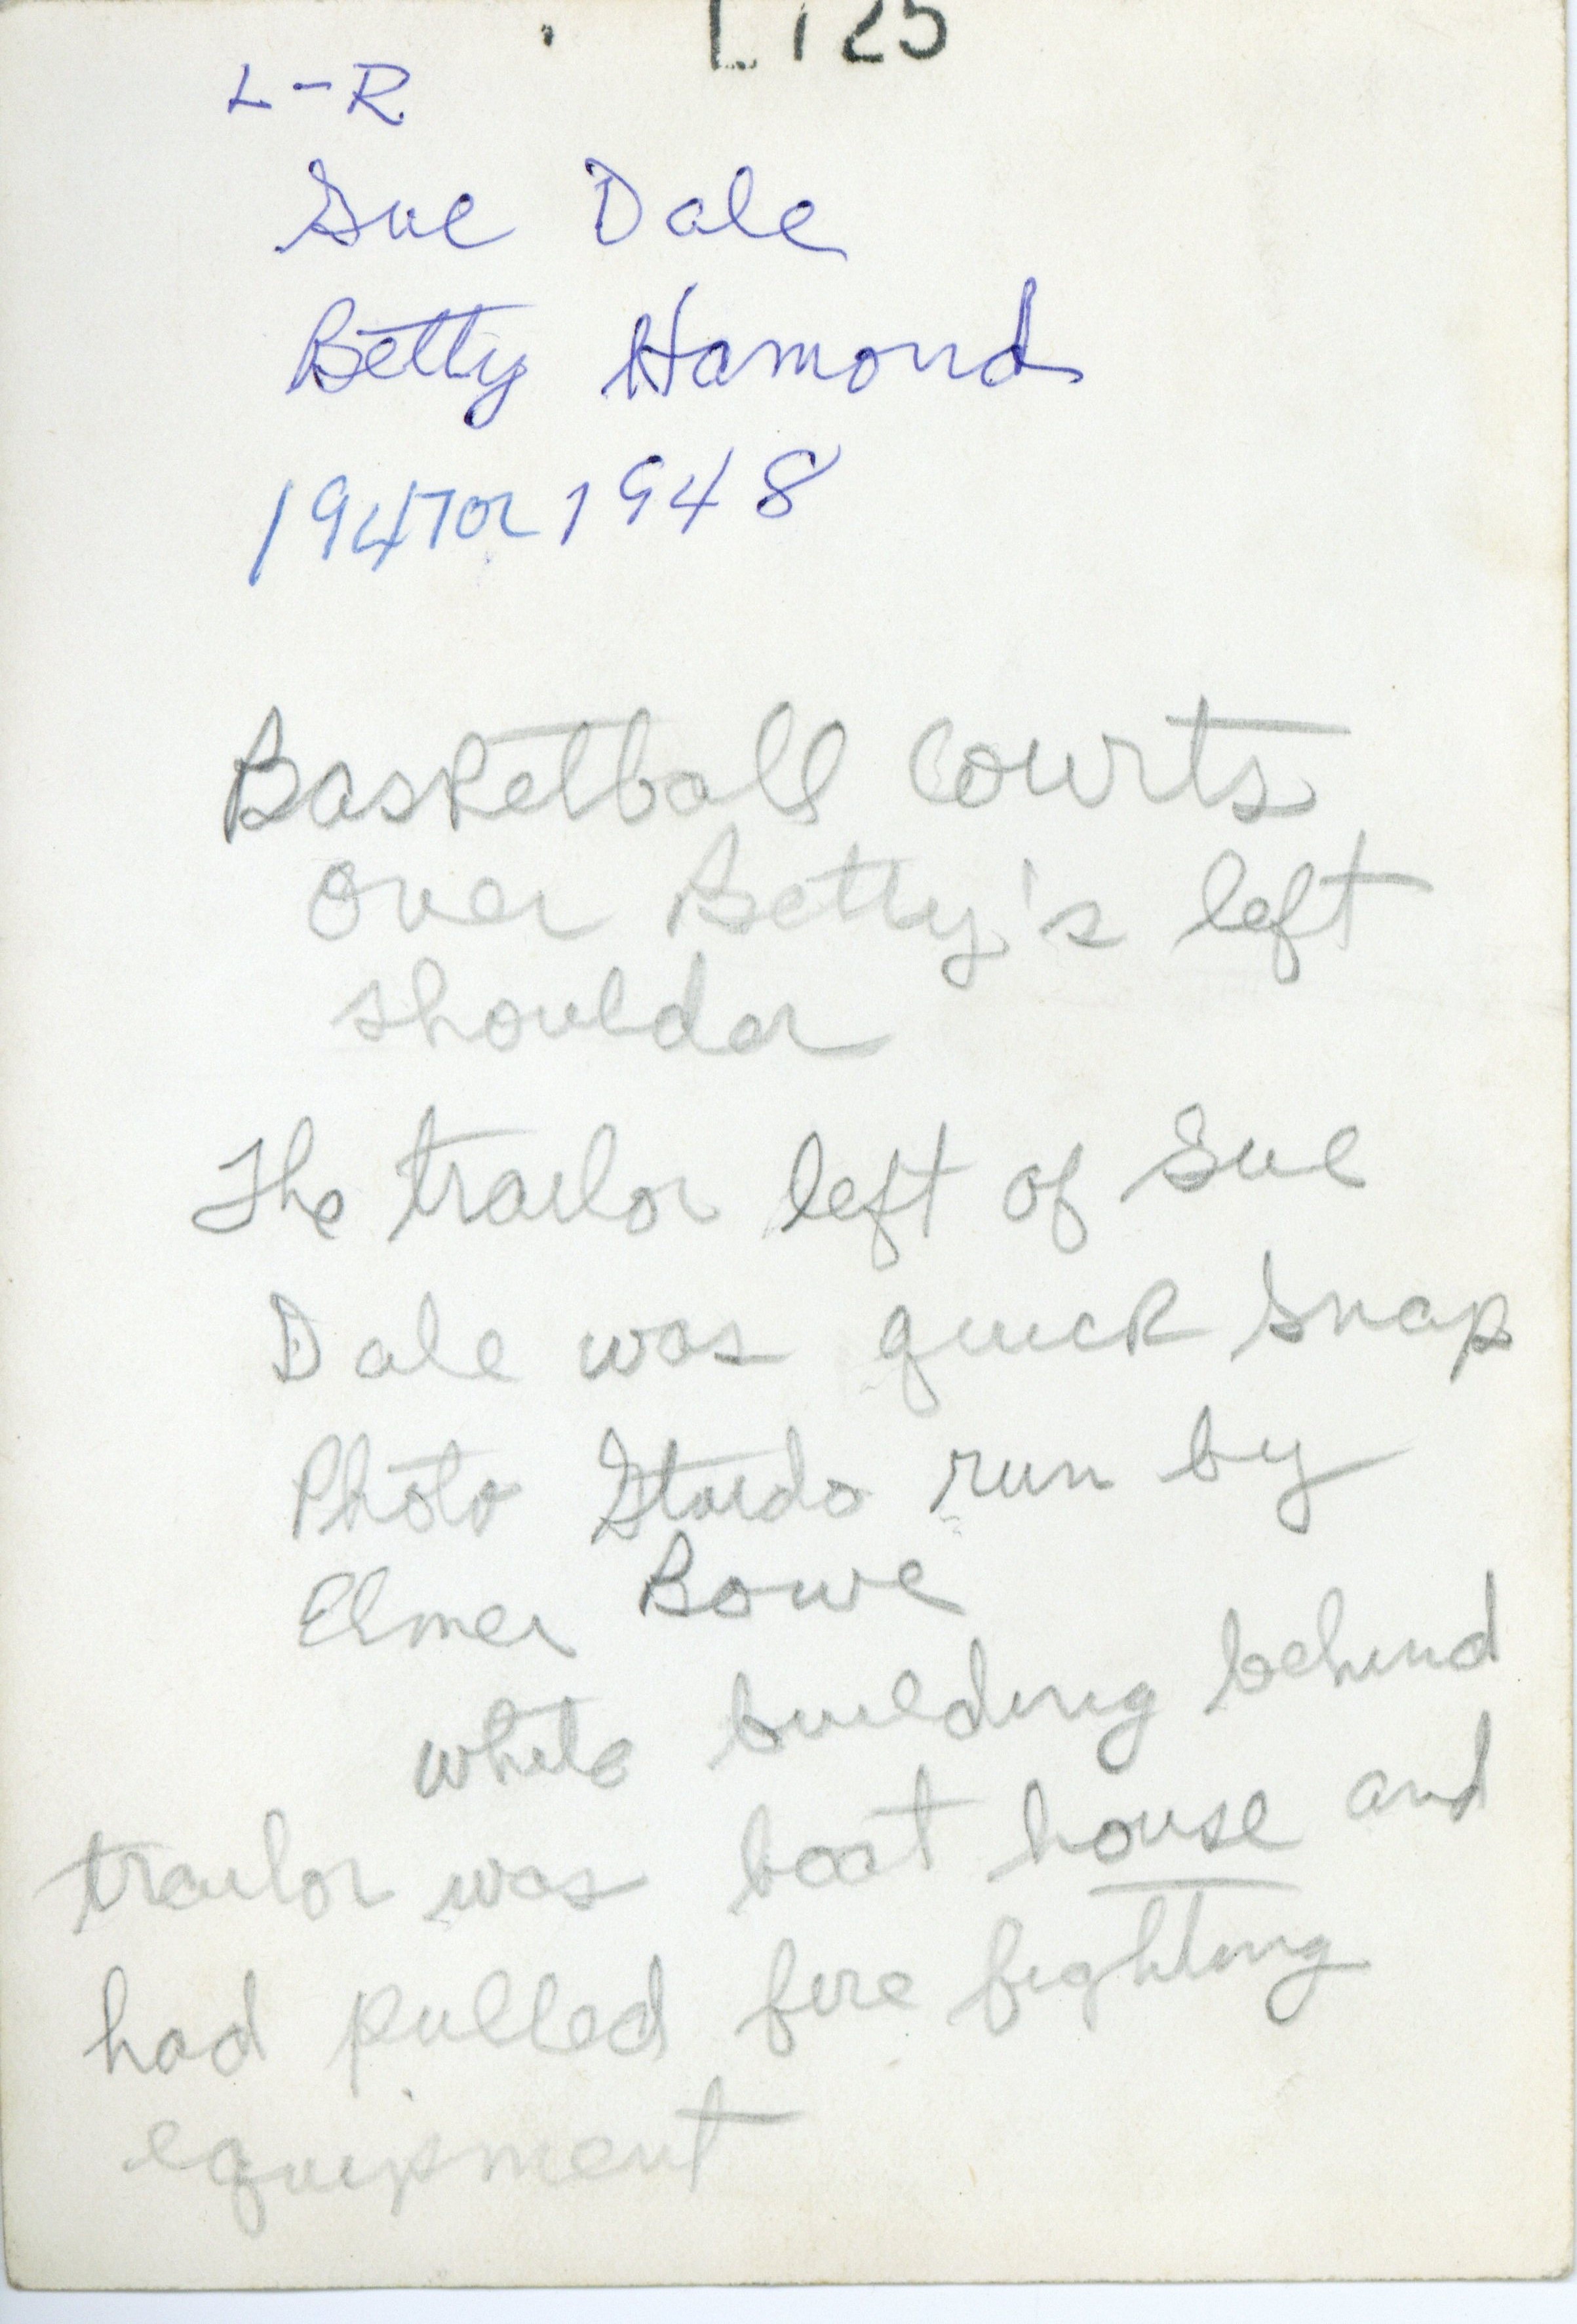 L-R
Sue Dale
Betty Hamond
1947 or 1948
Basketball Courts
over Betty's left
shoulder
The trailor left of Sue
Dale was quick Snap
Photo Stuido run by
Elmer Bowe
white building behind
trailor was boat house and
had pulled fire fighting
equipment